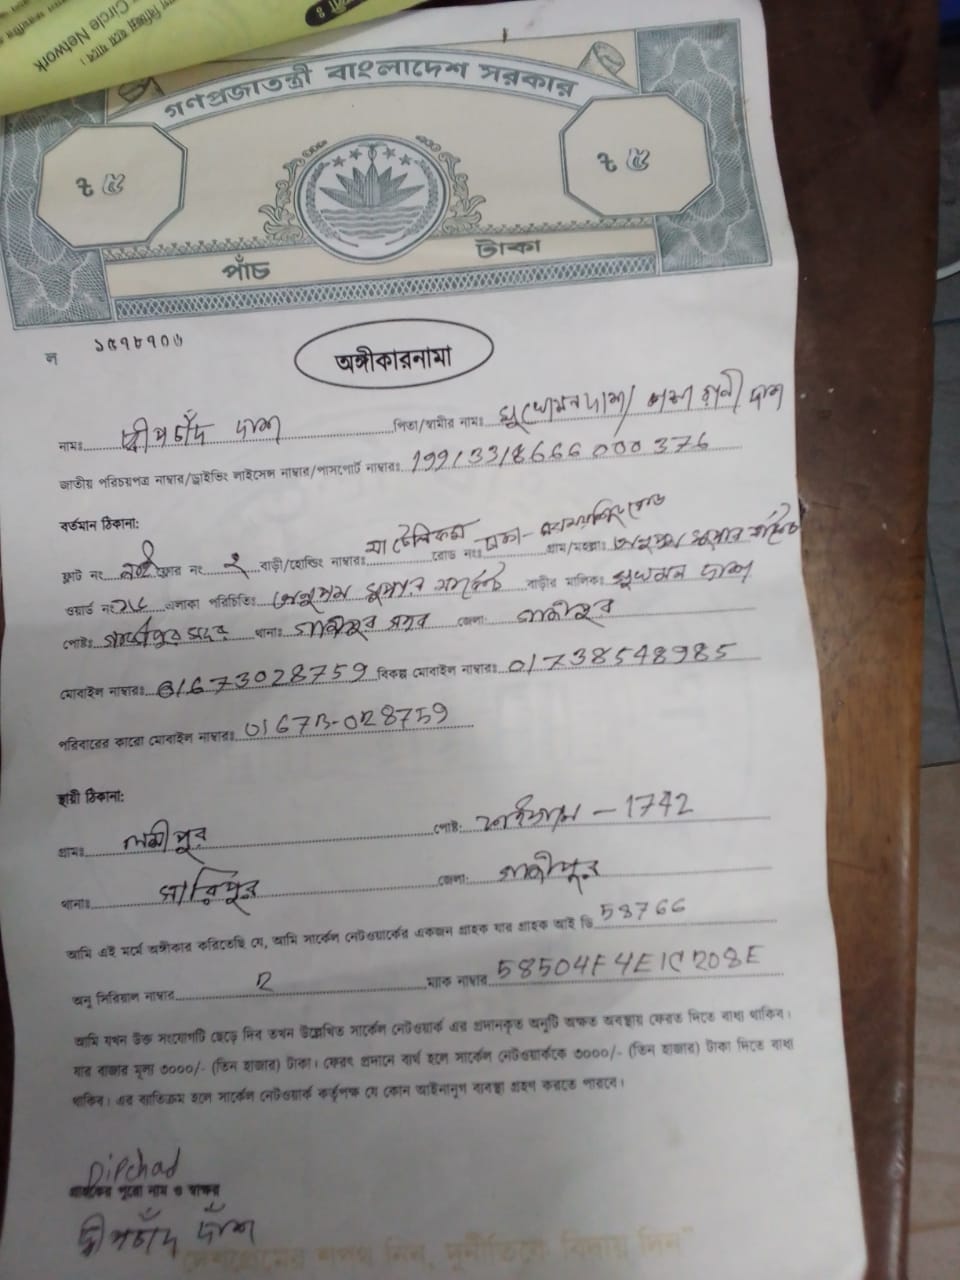 Circle Network
গণপ্রজাতন্ত্রী বাংলাদেশ সরকার
৳ ৫ ৳ ৫
পাঁচ টাকা
অঙ্গীকারনামা
নামঃ দ্বীপচাঁদ দাশ পিতা/স্বামীর নামঃ রানী দাশ
জাতীয় পরিচয়পত্র নাম্বার/ড্রাইভিং লাইসেন্স নাম্বার/পাসপোর্ট নাম্বারঃ 199133/8666000376
বর্তমান ঠিকানা:
ফ্ল্যাট নং ফ্লোর নং ২ বাড়ী/হোল্ডিং নাম্বারঃ মা টেলিকম রোড নং ঢাকা- রোড গ্রাম/মহল্লাঃ অনুপম সুপার মার্কেট
ওয়ার্ড নং এলাকা পরিচিতিঃ অনুপম সুপার মার্কেট বাড়ীর মালিকঃ দাশ
পোষ্টঃ গাজীপুর সদর থানাঃ গাজীপুর সদর জেলা: গাজীপুর
মোবাইল নাম্বারঃ 01673028759 বিকল্প মোবাইল নাম্বারঃ 01738548985
পরিবারের কারো মোবাইল নাম্বারঃ 01673-028759
স্থায়ী ঠিকানা:
গ্রামঃ লক্ষীপুর পোষ্ট: - 1742
থানাঃ জেলা: গাজীপুর
আমি এই মর্মে অঙ্গীকার করিতেছি যে, আমি সার্কেল নেটওয়ার্কের একজন গ্রাহক যার গ্রাহক আই ডি 58766
অনু সিরিয়াল নাম্বার 2 ম্যাক নাম্বার 58504F4E1C208E
আমি যখন উক্ত সংযোগটি ছেড়ে দিব তখন উল্লেখিত সার্কেল নেটওয়ার্ক এর প্রদানকৃত অনুটি অক্ষত অবস্থায় ফেরত দিতে বাধ্য থাকিব।
যার বাজার মূল্য ৩০০০/- (তিন হাজার) টাকা। ফেরৎ প্রদানে ব্যর্থ হলে সার্কেল নেটওয়ার্ককে ৩০০০/- (তিন হাজার) টাকা দিতে বাধ্য
থাকিব। এর ব্যতিক্রম হলে সার্কেল নেটওয়ার্ক কর্তৃপক্ষ যে কোন আইনানুগ ব্যবস্থা গ্রহণ করতে পারবে।
Dipchad
গ্রাহকের পুরো নাম ও স্বাক্ষর
দ্বীপচাঁদ দাঁশ
"দেশপ্রেমের শপথ নিন, দুর্নীতিকে বিদায় দিন"